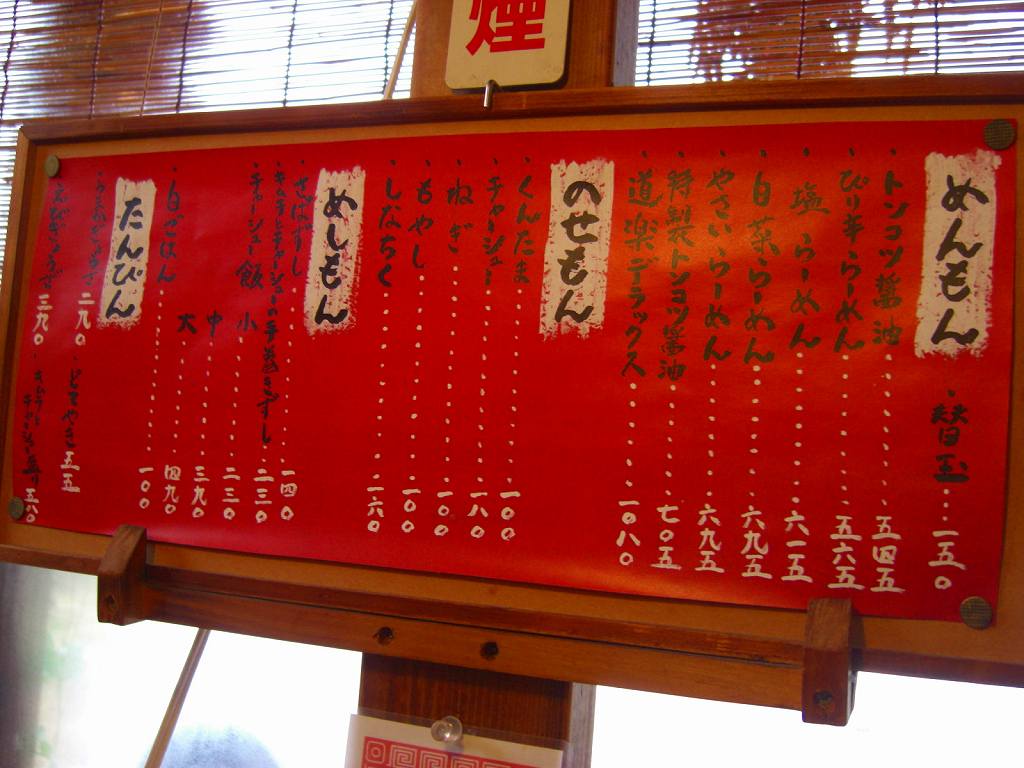 煙
めんもん
・替玉……一五〇
・トンコツ醤油……五四五
・ぴり辛らーめん……五六五
・塩らーめん……六一五
・白菜らーめん……六九五
・やさいらーめん……六九五
・特製トンコツ醤油……七〇五
・道楽デラックス……一〇八〇
のせもん
・くんたま……一〇〇
・チャーシュー……一八〇
・ねぎ……一〇〇
・もやし……一〇〇
・しなちく……一六〇
めしもん
・さばずし……一四〇
・キムチとチャーシューの手巻きずし……一三〇
・チャーシュー飯 小……二三〇
中……三九〇
大……四九〇
・白ごはん……一〇〇
たんぴん
二九〇
・どてやき 五五
・えびぎょうざ 三九〇
五八〇